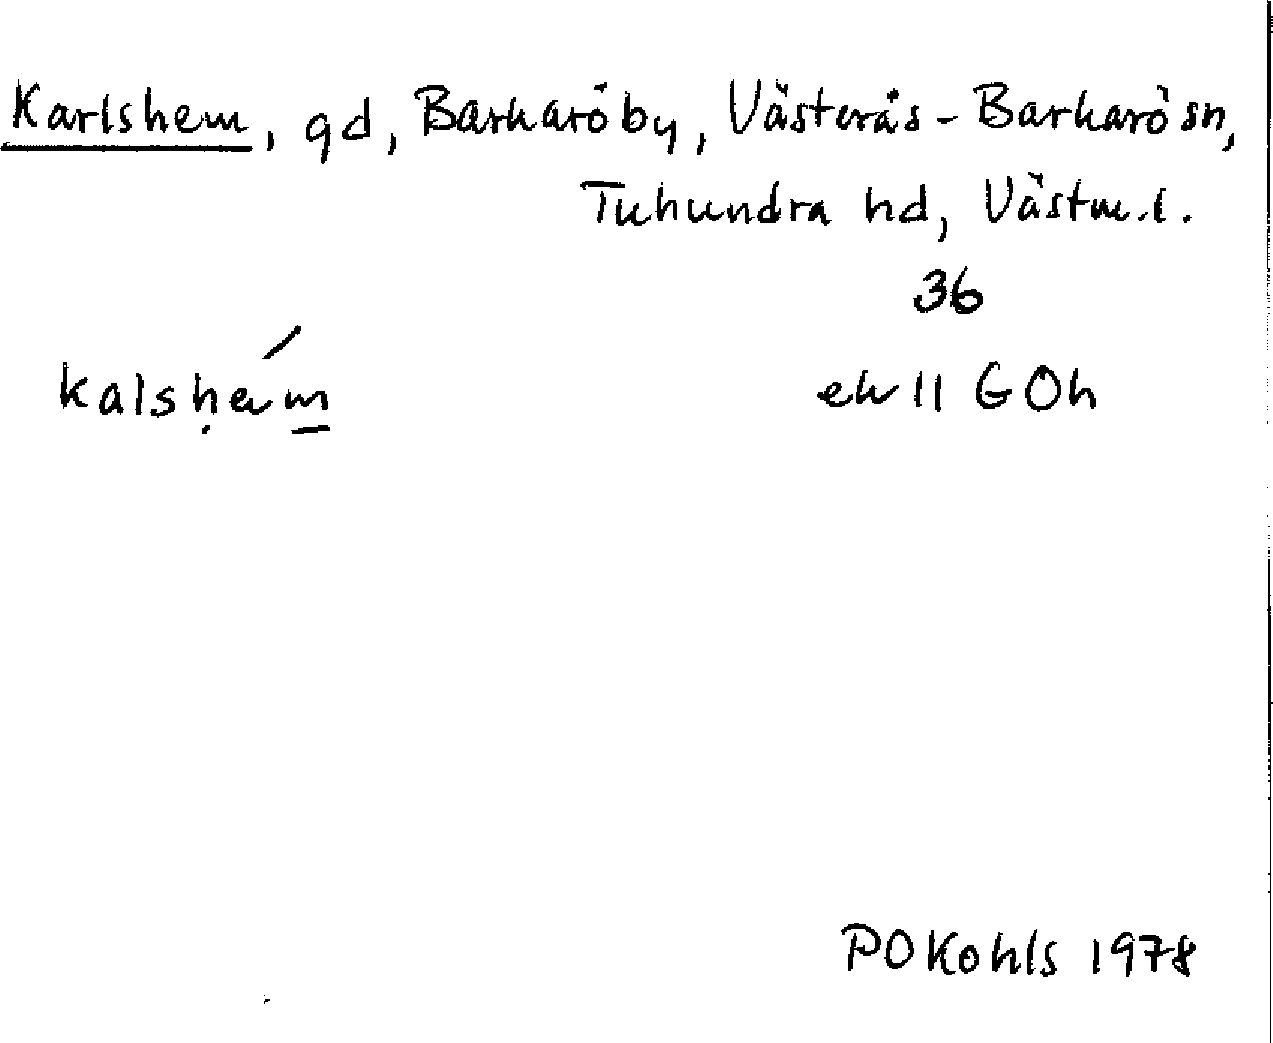 Karlshem, gd, Barkaröby, Västerås-Barkarö sn,
Tuhundra hd, Västm.l.
36
ek 11 G Oh
P O Kohls 1978